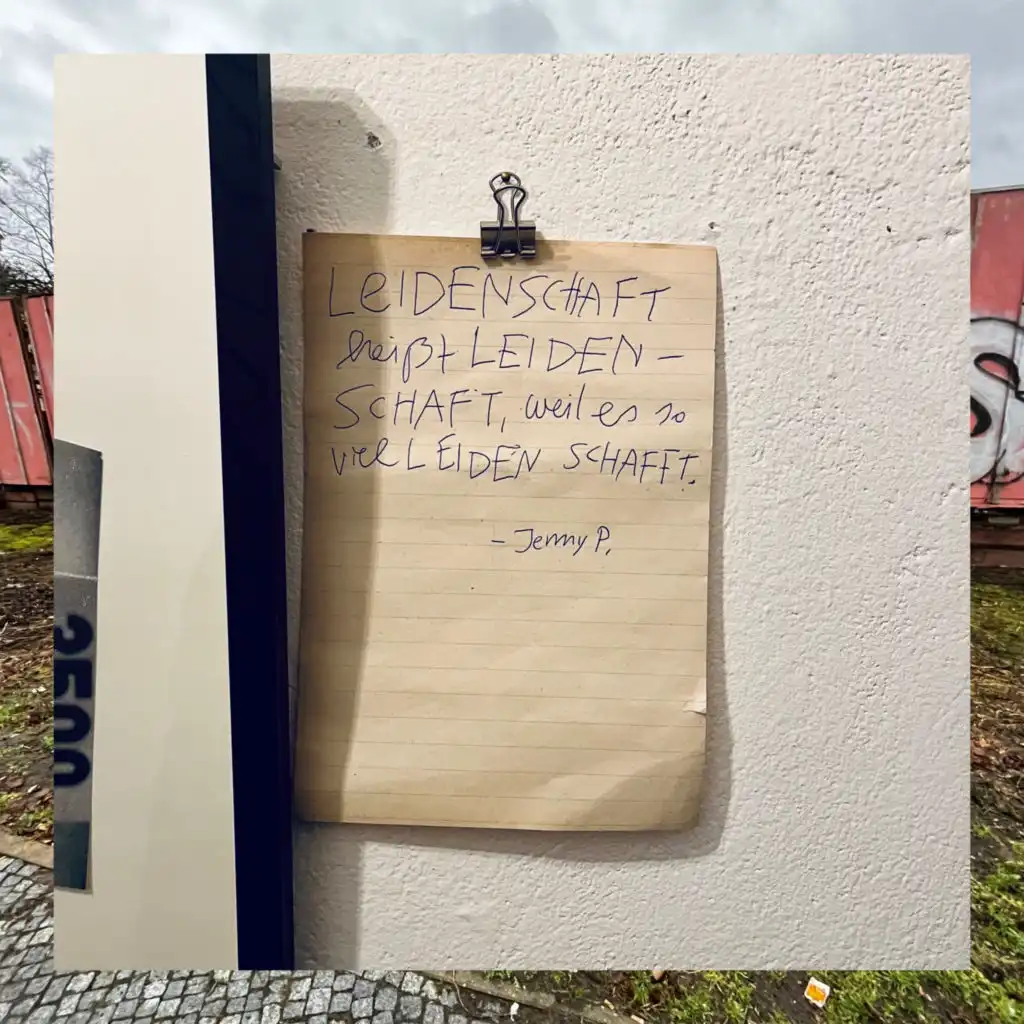 LEIDENSCHAFT
heißt LEIDEN-
SCHAFT, weil es so
viel LEIDEN SCHAFFT.
- Jenny P.